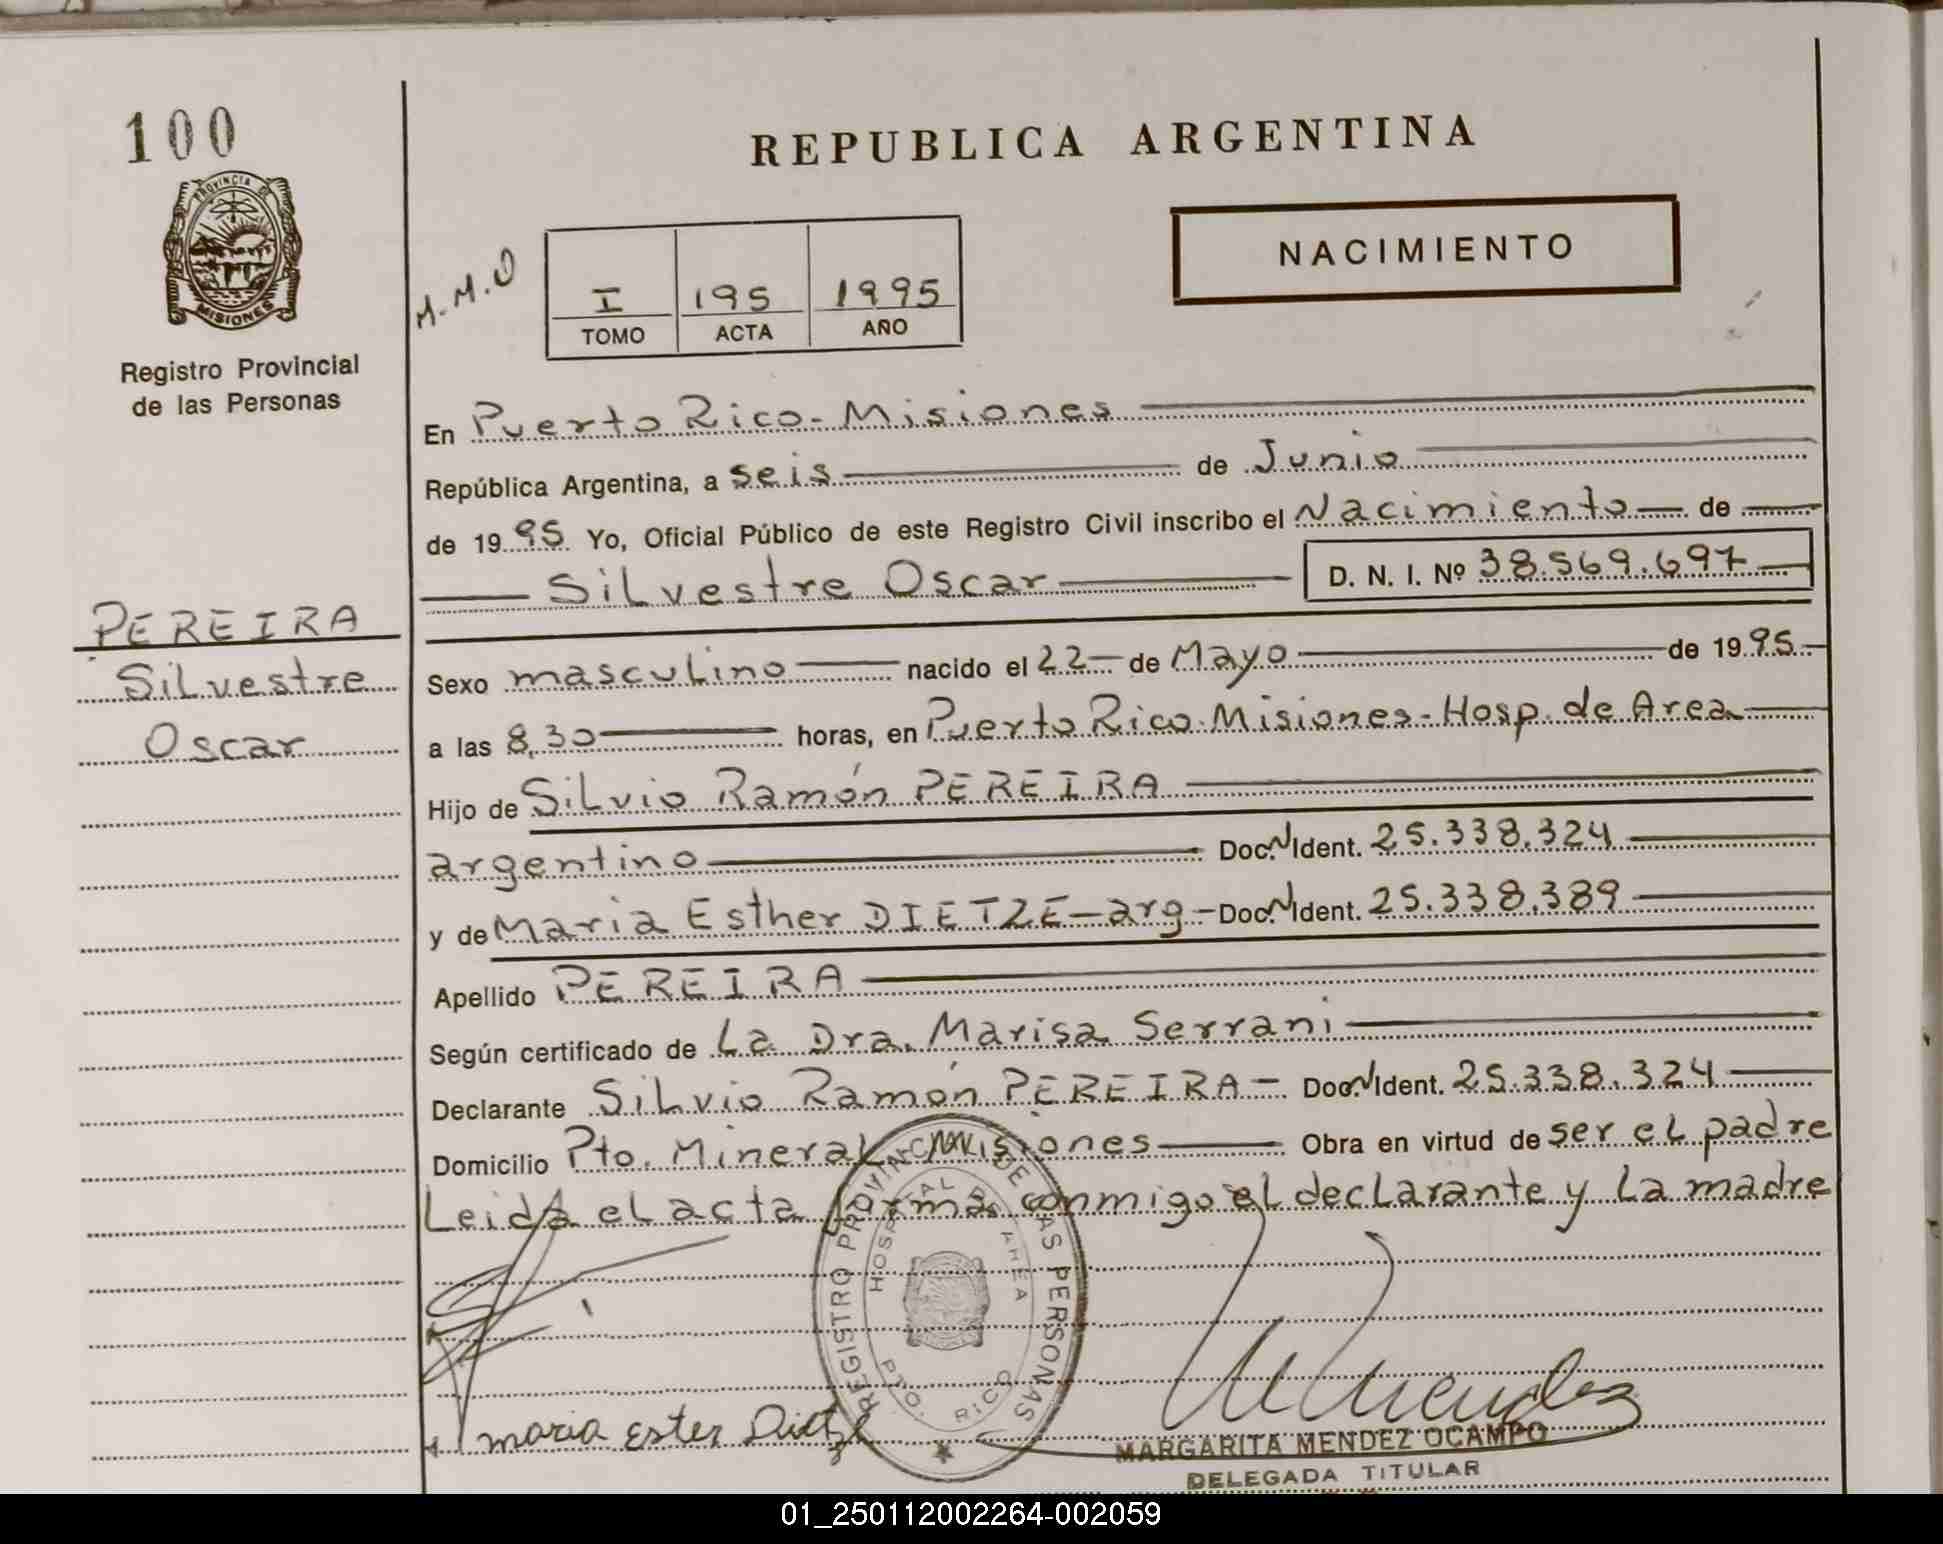 100
PROVINCIA DE
MISIONES
Registro Provincial
de las Personas
PEREIRA
Silvestre
Oscar
REPUBLICA ARGENTINA
M.M.O
I 195 1995
TOMO ACTA AÑO
NACIMIENTO
En Puerto Rico-Misiones
República Argentina, a seis de Junio
de 1995 Yo, Oficial Público de este Registro Civil inscribo el Nacimiento de
Silvestre Oscar D. N. I. Nº 38.569.697
Sexo masculino nacido el 22 de Mayo de 1995
a las 8,30 horas, en Puerto Rico-Misiones-Hosp. de Area
Hijo de Silvio Ramón PEREIRA
argentino Doc. N Ident. 25.338.324
y de Maria Esther DIETZE-arg- Doc. N Ident. 25.338.389
Apellido PEREIRA
Según certificado de La Dra. Marisa Serrani
Declarante Silvio Ramón PEREIRA- Doc. N Ident. 25.338.324
Domicilio Pto. Mineral Misiones Obra en virtud de ser el padre
Leida el acta firma conmigo el declarante y la madre
REGISTRO PROVINCIAL DE LAS PERSONAS
HOSPITAL DE AREA
PTO. RICO
maria Ester Dietze
M Mendez
MARGARITA MENDEZ OCAMPO
DELEGADA TITULAR
01_250112002264-002059